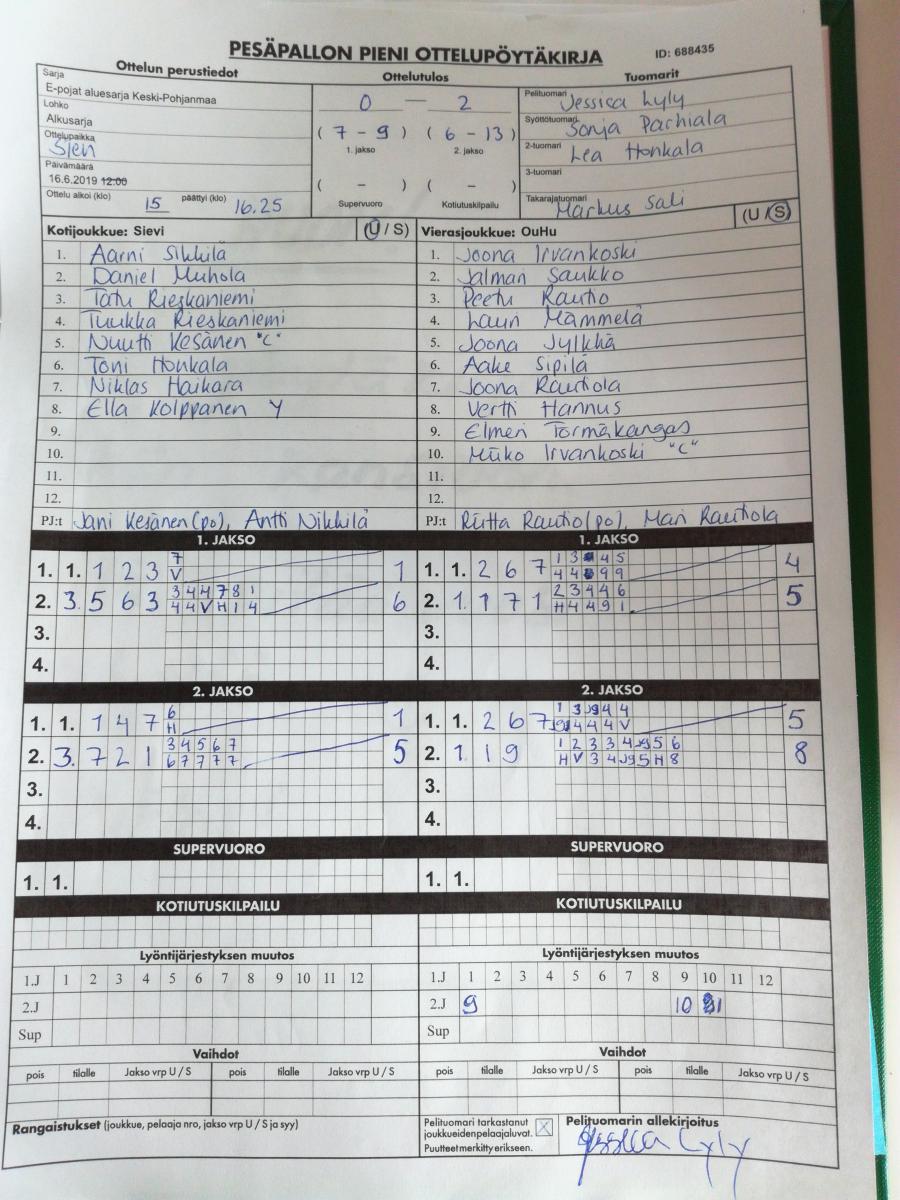 PESÄPALLON PIENI OTTELUPÖYTÄKIRJA
ID: 688435
Ottelun perustiedot
Sarja
E-pojat aluesarja Keski-Pohjanmaa
Lohko
Alkusarja
Ottelupaikka
Sievi
Päivämäärä
16.6.2019 12:00
Ottelu alkoi (klo) 15 päättyi (klo) 16.25
Ottelutulos
0 — 2
( 7 - 9 ) ( 6 - 13 )
1. jakso 2. jakso
( - ) ( - )
Supervuoro Kotiutuskilpailu
Tuomarit
Pelituomari Jessica Lyly
Syöttötuomari Sonja Parhiala
2-tuomari Lea Honkala
3-tuomari
Takarajatuomari Markus Sali
Kotijoukkue: Sievi (U / S)
1. Aarni Sikkilä
2. Daniel Muhola
3. Tatu Rieskaniemi
4. Tuukka Rieskaniemi
5. Nuutti Kesänen "C"
6. Toni Honkala
7. Niklas Haikara
8. Ella Kolppanen Y
9.
10.
11.
12.
PJ:t Jani Kesänen (po), Antti Nikkilä
Vierasjoukkue: OuHu (U / S)
1. Joona Irvankoski
2. Jalmari Saukko
3. Peetu Rautio
4. Lauri Mämmelä
5. Joona Jylkkä
6. Aake Sipilä
7. Joona Rautiola
8. Vertti Hannus
9. Elmeri Törmäkangas
10. Miiko Irvankoski "C"
11.
12.
PJ:t Riitta Rautio (po), Mari Rautiola
1. JAKSO
1. 1. 1 2 3 7 1
V
2. 3. 5 6 3 3 4 4 7 8 1 6
4 4 V H 1 4
3.
4.
1. JAKSO
1. 1. 2 6 7 1 3 4 5 4
4 4 9 9
2. 1. 1 7 1 2 3 4 4 6 5
H 4 4 9 1
3.
4.
2. JAKSO
1. 1. 1 4 7 6 1
H
2. 3. 7 2 1 3 4 5 6 7 5
6 7 7 7 7
3.
4.
2. JAKSO
1. 1. 2 6 7 1 3 J9 4 4 5
J9 4 4 4 V
2. 1. 1 9 1 2 3 3 4 J9 5 6 8
H V 3 4 J9 5 H 8
3.
4.
SUPERVUORO
1. 1.
SUPERVUORO
1. 1.
KOTIUTUSKILPAILU
KOTIUTUSKILPAILU
Lyöntijärjestyksen muutos
1.J 1 2 3 4 5 6 7 8 9 10 11 12
2.J
Sup
Lyöntijärjestyksen muutos
1.J 1 2 3 4 5 6 7 8 9 10 11 12
2.J 9 10 1
Sup
Vaihdot
pois tilalle Jakso vrp U / S pois tilalle Jakso vrp U / S
Vaihdot
pois tilalle Jakso vrp U / S pois tilalle Jakso vrp U / S
Rangaistukset (joukkue, pelaaja nro, jakso vrp U / S ja syy)
Pelituomari tarkastanut
joukkueidenpelaajaluvat. X
Puutteet merkitty erikseen.
Pelituomarin allekirjoitus
Jessica Lyly